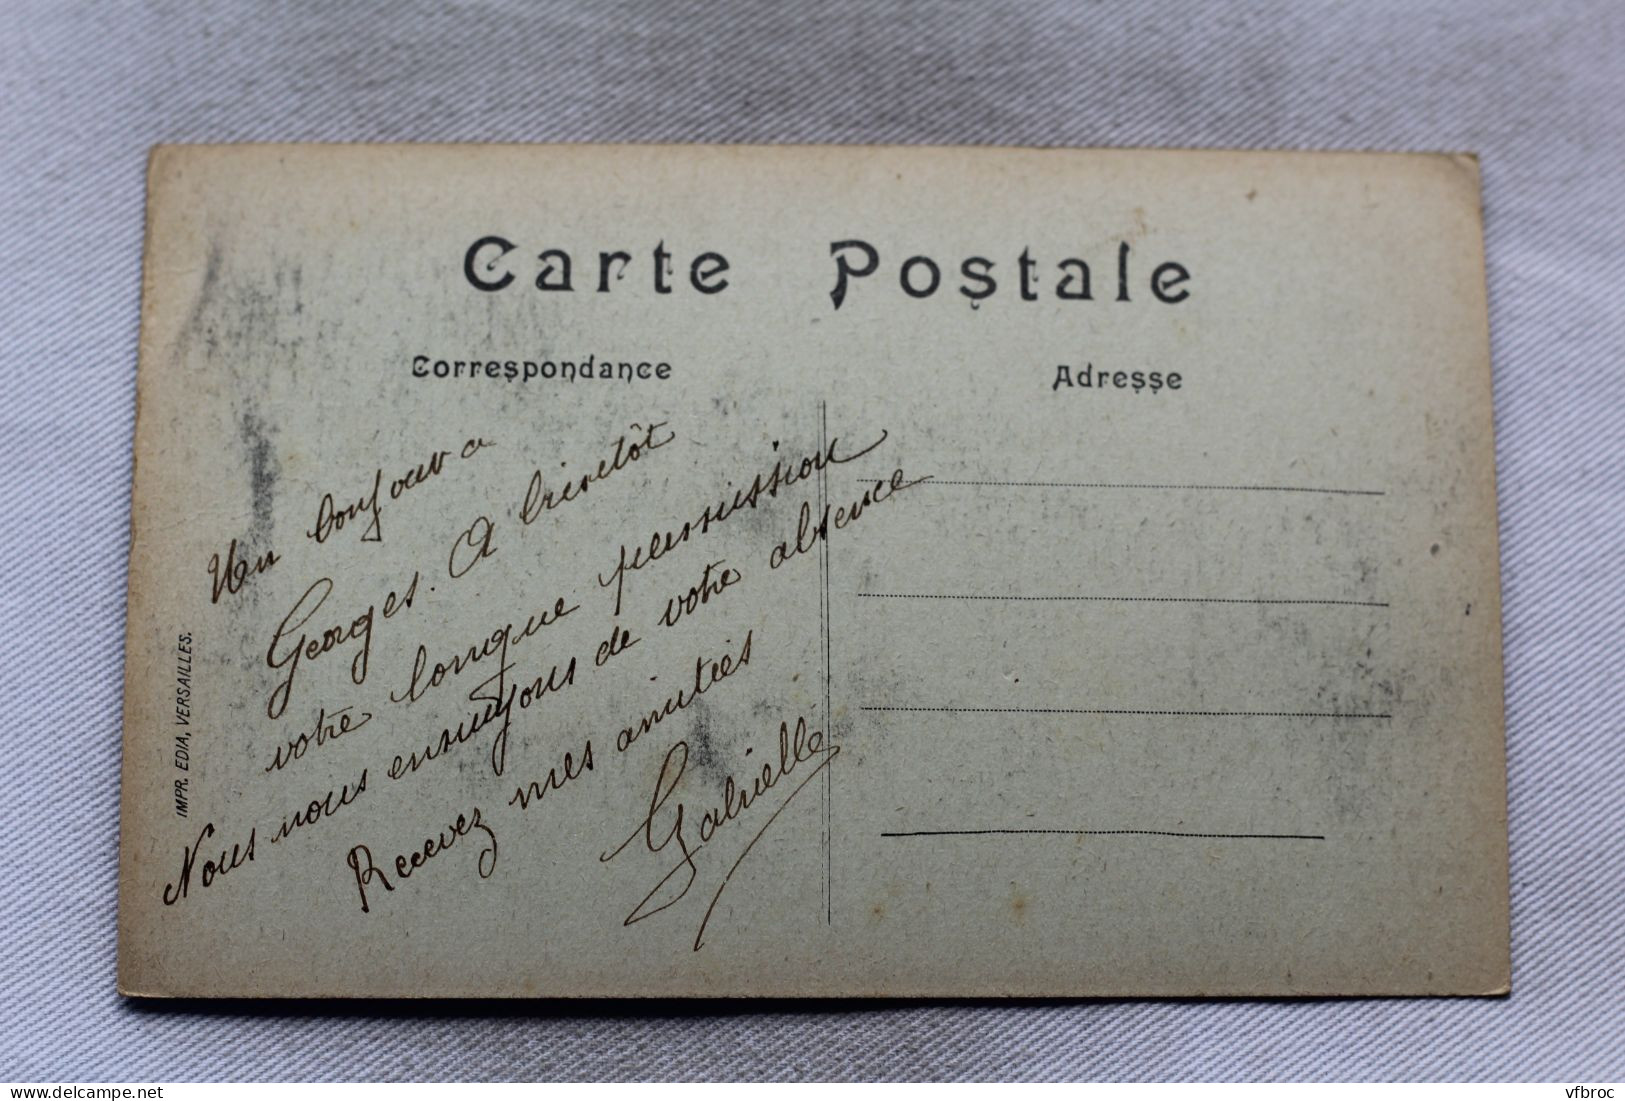 Carte Postale
Correspondance
Adresse
Un bonjour a
Georges. A bientôt
votre longue permission
Nous nous ennuyons de votre absence
Recevez mes amitiés
Gabrielle
IMPR. EDIA, VERSAILLES.
https://www.delcampe.net
vfbroc